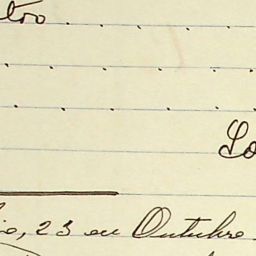 tro
. . . . . .
. . . . . . .
Lo
io, 23 em Outubro